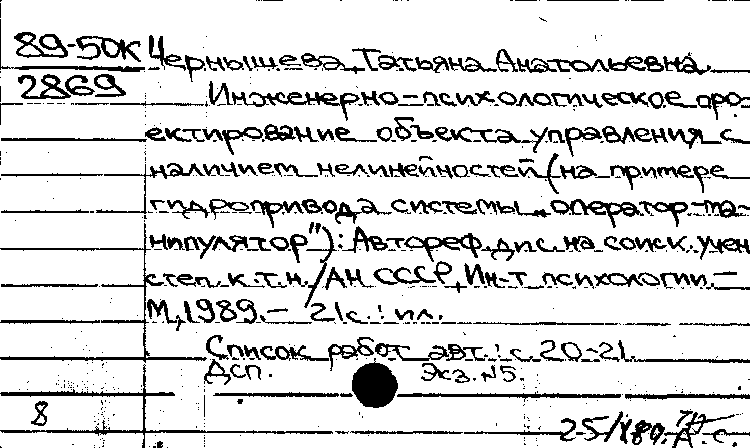 89-50к Чернышева, Татьяна Анатольевна.
2869 Инженерно-психологическое про-
ектирование объекта управления с
наличием нелинейностей (на примере
гидропривода системы „оператор-ма-
нипулятор"): Автореф. дис. на соиск. учен.
степ. к.т.н. / АН СССР, Ин-т психологии. –
М., 1989. – 21с.: ил.
Список работ авт.: с. 20-21.
ДСП. Экз. №5.
8